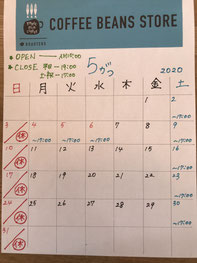 COFFEE BEANS STORE
● OPEN AM10:00
● CLOSE 平日 ~19:00
土・日 ~17:00
5がつ
2020
日 月 火 水 木 金 土
1 2
~17:00
3 休 4 5 6 7 8 9
~17:00 ~17:00 ~17:00 ~17:00
10 休 11 12 13 14 15 16
~17:00
17 休 18 19 20 21 22 23
~17:00
24 休 25 26 27 28 29 30
~17:00
31 休